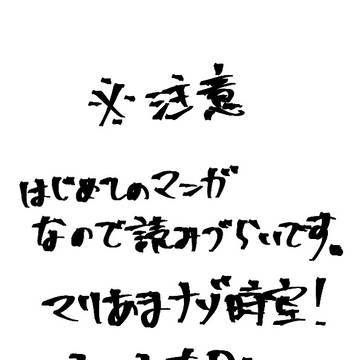 ※注意
はじめてのマンガ
なので読みづらいです。
マリあまナゾ時空!